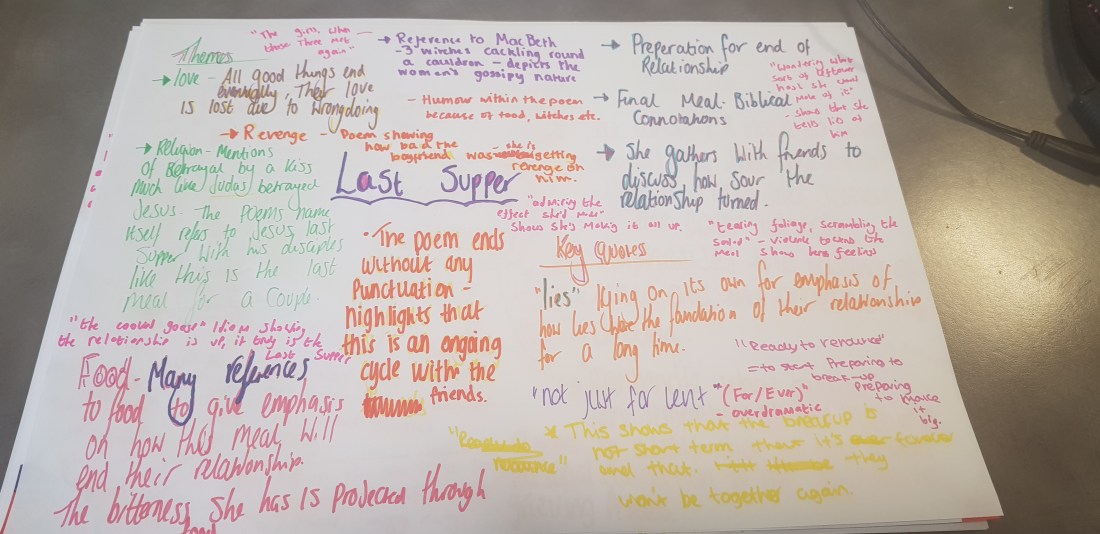 Themes
"The girls, when
those three met
again"
→ Reference to MacBeth
-3 witches cackling round
a cauldron - depicts the
women's gossipy nature
→ love - All good things end
eventually, Their love
is lost due to wrongdoing
- Humour within the poem
because of food, witches etc.
→ Revenge - Poem showing
how bad the
boyfriend was - she is
getting
revenge on
him.
→ Religion - Mentions
of Betrayal by a kiss
much like Judas betrayed
Jesus. The poems name
itself refers to Jesus last
Supper with his disciples
like this is the last
meal for a couple.
Last Supper
→ Preperation for end of
Relationship
→ Final Meal - Biblical
Connotations
"wondering what
sort of leftover
hash she would
make of it"
- shows that she
tells lies of
him
→ She gathers with friends to
discuss how sour the
relationship turned.
"admiring the
effect she'd made"
Shows she's making it all up.
"tearing foliage, scrambling the
salad" - violence towards the
meal shows hers feelings
• The poem ends
without any
Punctuation -
highlights that
this is an ongoing
cycle with the
friends.
Key Quotes
"lies" lying on its own for emphasis of
how lies have the foundation of their relationship
for a long time.
"Ready to renounce"
= to start Preparing to
break-up
preparing
to make
it
big.
"not just for lent "(For/Ever)"
- overdramatic
* This shows that the breakup is
not short term that it's forever
and that they
won't be together again.
"the cooked goose" Idiom showing
the relationship is up, it truly is the
Last Supper
Food - Many references
to food to give emphasis
on how this meal will
end their relationship.
The bitterness she has is projected through
food